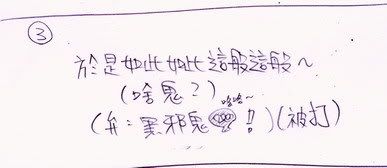 ③
於是如此如此這般這般～
(啥鬼？)
哈哈～
(弁：黑邪鬼！！)(被打)